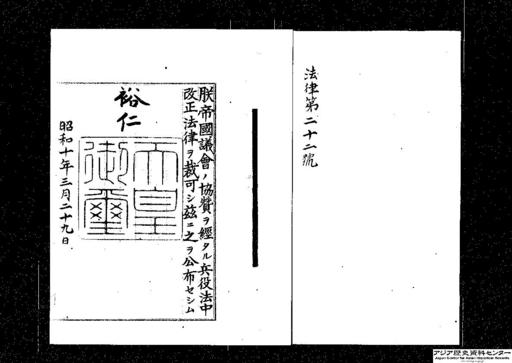 法律第二十二號
朕帝國議會ノ協賛ヲ經タル兵役法中
改正法律ヲ裁可シ茲ニ之ヲ公布セシム
裕仁
天皇御璽
昭和十年三月二十九日
アジア歴史資料センター
Japan Center for Asian Historical Records